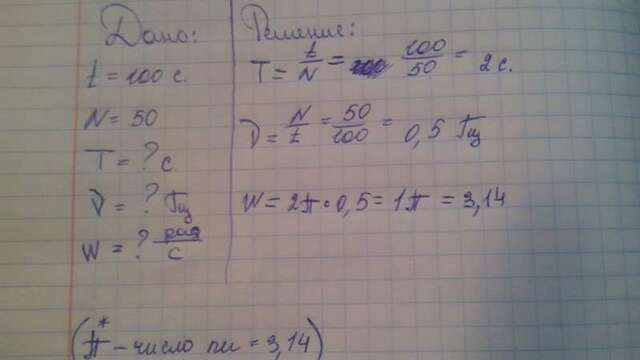 Дано:
t = 100 с.
N = 50
T = ? с
ν = ? Гц
W = ? рад/с
Решение:
T = t/N = 100/50 = 2 с.
ν = N/t = 50/100 = 0,5 Гц
W = 2π • 0,5 = 1π = 3,14
(π* - число пи = 3,14)